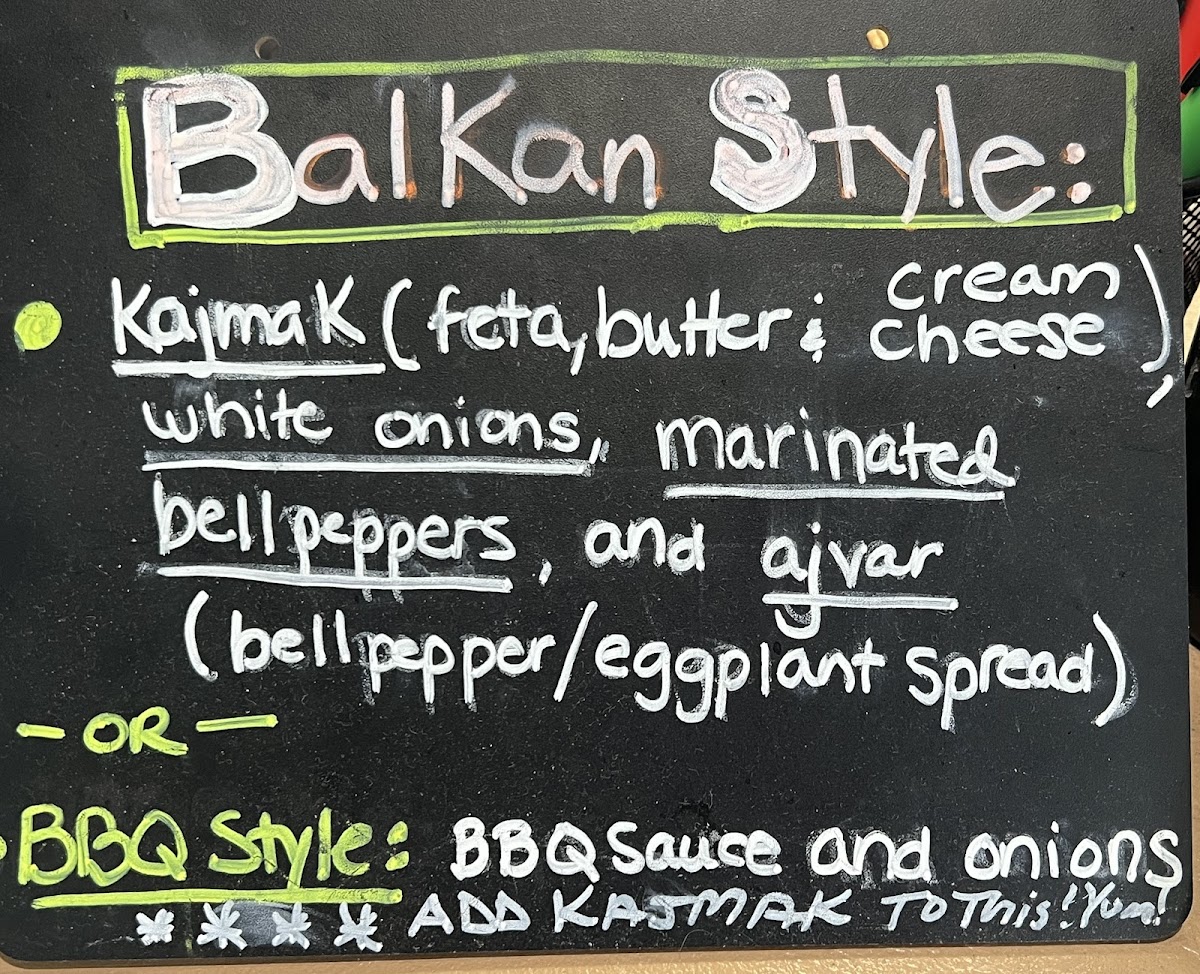 BalKan Style:
KajmaK (feta, butter & cream cheese),
white onions, marinated
bell peppers, and ajvar
(bell pepper/eggplant spread)
- OR -
BBQ Style: BBQ Sauce and onions
**** ADD KAJMAK To This! Yum!